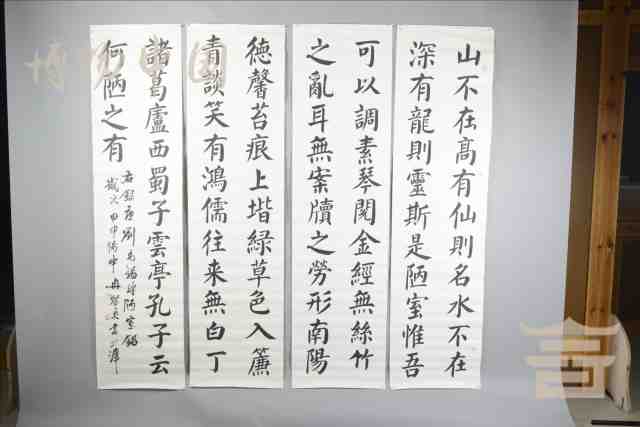 山不在髙有仙則名水不在
深有龍則靈斯是陋室惟吾
可以調素琴閱金經無絲竹
之亂耳無案牘之勞形南陽
德馨苔痕上堦綠草色入簾
青談笑有鴻儒往来無白丁
諸葛廬西蜀子雲亭孔子云
何陋之有
右錄唐劉禹錫詩陋室銘
歲次甲申